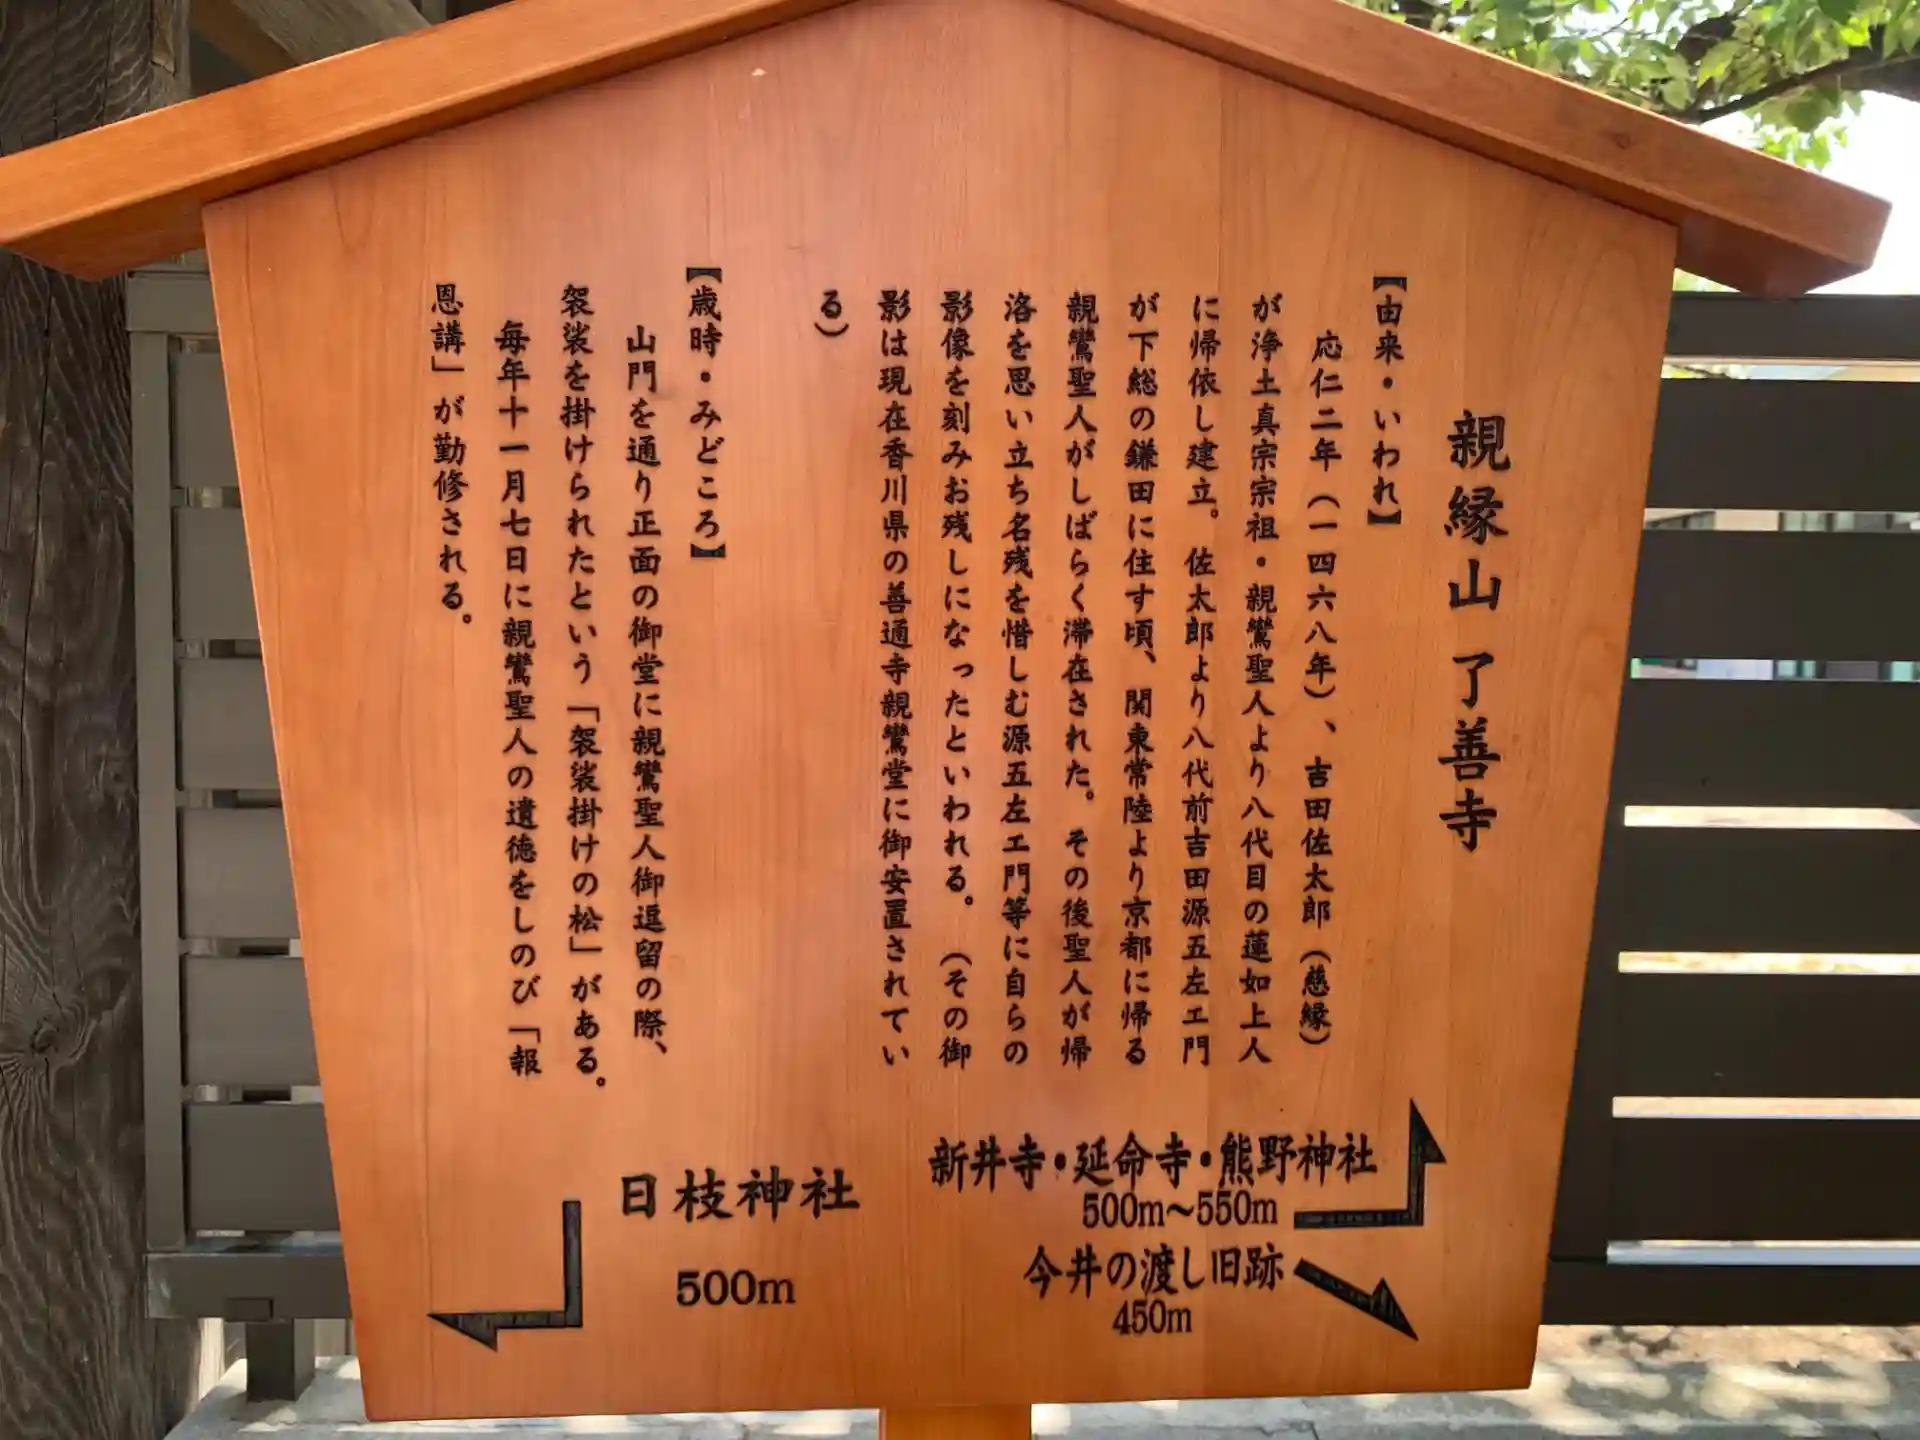 親縁山 了善寺
【由来・いわれ】
応仁二年（一四六八年）、吉田佐太郎（慈縁）
が浄土真宗宗祖・親鸞聖人より八代目の蓮如上人
に帰依し建立。佐太郎より八代前吉田源五左エ門
が下総の鎌田に住す頃、関東常陸より京都に帰る
親鸞聖人がしばらく滞在された。その後聖人が帰
洛を思い立ち名残を惜しむ源五左エ門等に自らの
影像を刻みお残しになったといわれる。（その御
影は現在香川県の善通寺親鸞堂に御安置されてい
る）
【歳時・みどころ】
山門を通り正面の御堂に親鸞聖人御逗留の際、
袈裟を掛けられたという「袈裟掛けの松」がある。
毎年十一月七日に親鸞聖人の遺徳をしのび「報
恩講」が勤修される。
新井寺・延命寺・熊野神社
500m〜550m
今井の渡し旧跡
450m
日枝神社
500m